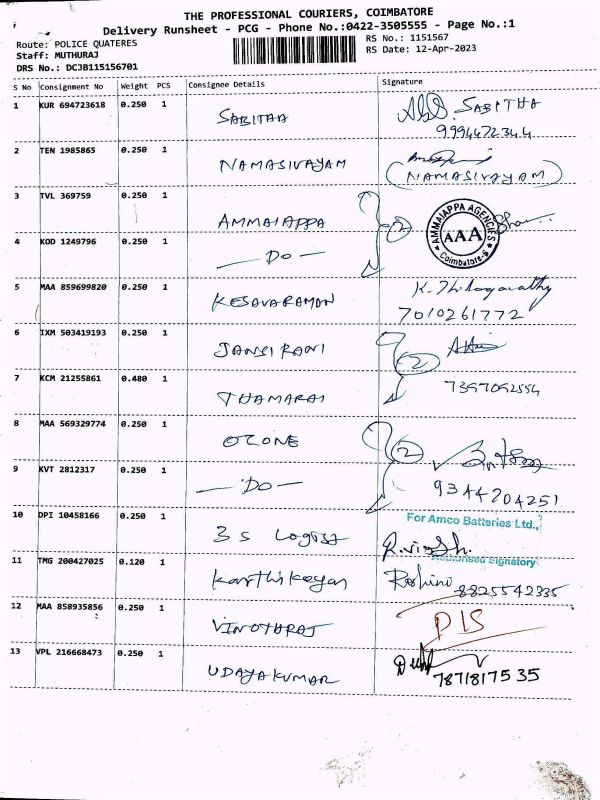 THE PROFESSIONAL COURIERS, COIMBATORE
Delivery Runsheet - PCG - Phone No.:0422-3505555 - Page No.:1
Route: POLICE QUATERES
RS No.: 1151567
Staff: MUTHURAJ
RS Date: 12-Apr-2023
DRS No.: DCJB115156701
S No Consignment No Weight PCS Consignee Details Signature
1 KUR 694723618 0.250 1 SABITHA SABITHA
9994472344
2 TEN 1985865 0.250 1 NAMASIVAYAM (NAMASIVAYAM)
3 TVL 369759 0.250 1 AMMAIAPPA 2 AMMAIAPPA AGENCIES AAA Coimbatore-6
4 KOD 1249796 0.250 1 — DO —
5 MAA 859699820 0.250 1 KESAVARAMAN K. Thilagavathy
7010261772
6 IXM 503419193 0.250 1 JANSI RANI 2
7 KCM 21255861 0.480 1 THAMARAI 7397092554
8 MAA 569329774 0.250 1 OZONE 2
9 KVT 2812317 0.250 1 — DO — 9344204251
10 DPI 10458166 0.250 1 3 S Logist For Amco Batteries Ltd.,
Authorised Signatory
11 TMG 200427025 0.120 1 Karthikeyan Roshini 8825542335
12 MAA 858935856 0.250 1 VINOTHRAJ DIS
13 VPL 216668473 0.250 1 UDAYAKUMAR 7871817535